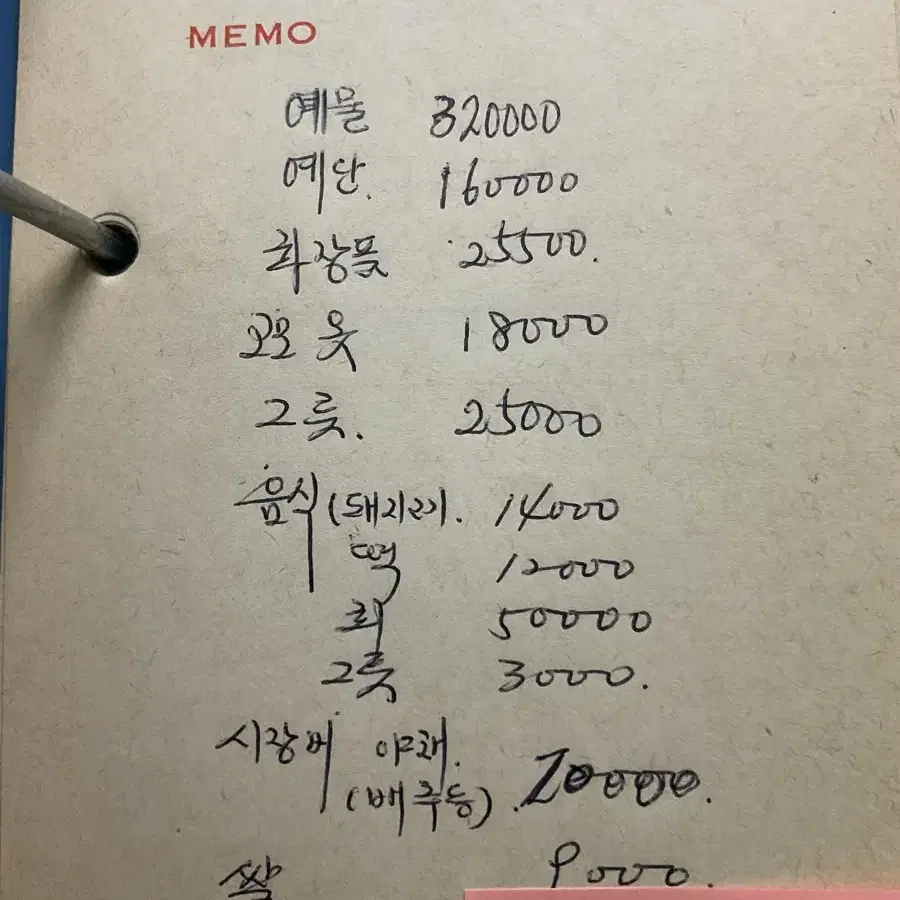 MEMO
예물 320000
예단. 160000
화장품 25500.
옷 18000
그릇. 25000
음식 (돼지고기. 14000
떡 12000
회 50000
그릇 3000.
시장비 야채.
(배추등).
쌀 9000.